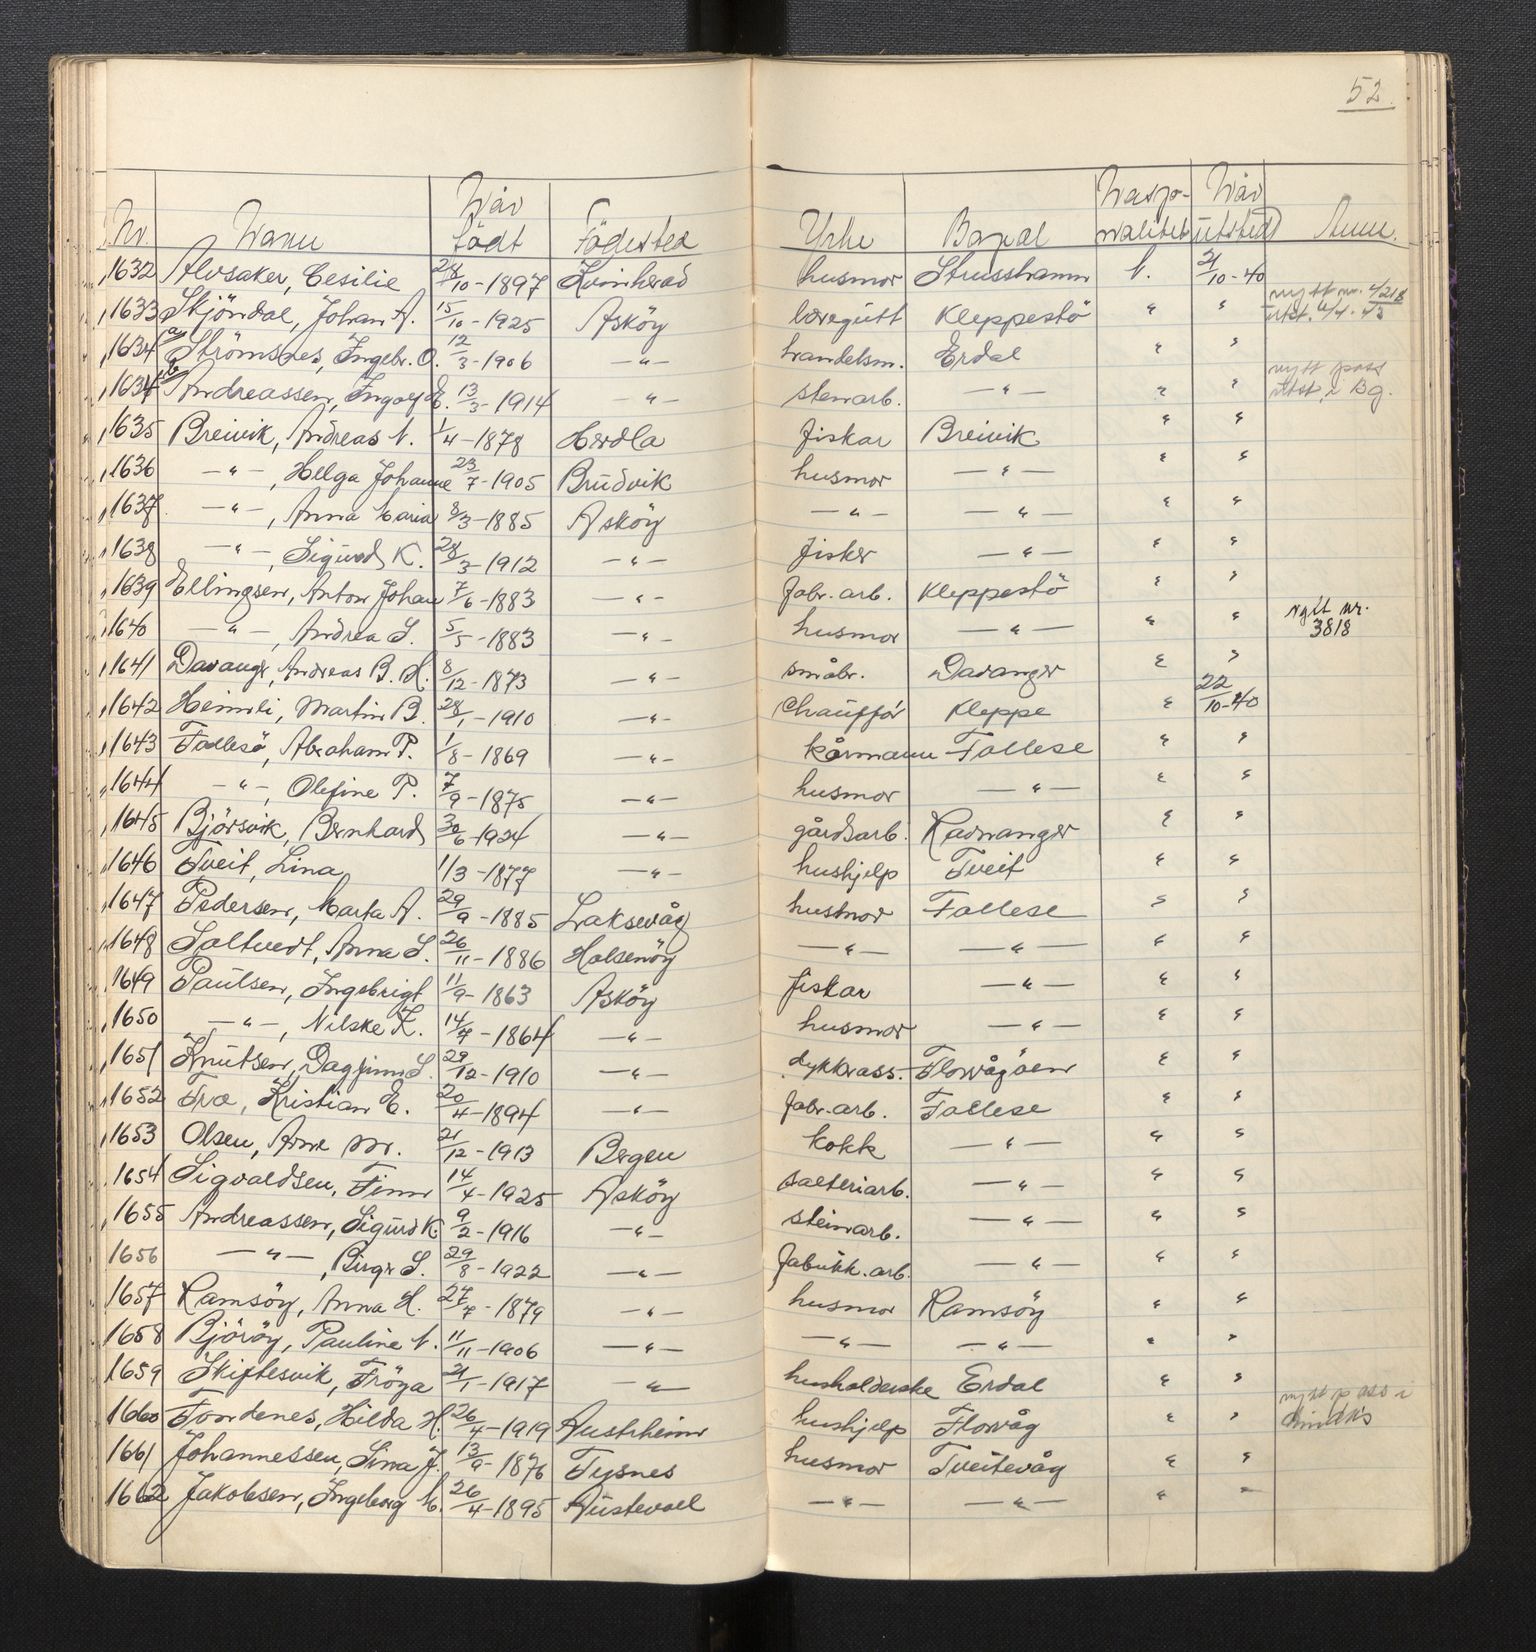 52.
Nr. Navn Når født Födested Yrke Bopæl Nasjo-nalitet Når utstedt Anm.
1632 Alvsaker, Cesilie 28/10-1897 Kvinherad husmor Strusshamn N. 21/10-40
1633 Skjöndal, Johan A. 15/10-1925 Asköy læregutt Kleppestö " " nytt nr. 4218 utst. 6/4-43
1634 a Strömsnes, Ingebr. O. 12/3-1906 —"— handelsm. Erdal " "
1634 b Andreassen, Ingolf E. 13/3-1914 —"— stenarb. —"— " " nytt pass utst. i Bg.
1635 Breivik, Andreas N. 1/4-1878 Herdla fiskar Breivik " "
1636 —"—, Helga Johanne 23/7-1905 Bruvik husmor —"— " "
1637 —"—, Anna Maria 8/3-1885 Asköy —"— —"— " "
1638 —"—, Sigurd K. 28/3-1912 —"— fisker —"— " "
1639 Ellingsen, Anton Johan 7/6-1883 —"— fabr. arb. Kleppestö " "
1640 —"—, Andrea S. 5/5-1883 —"— husmor —"— " " nytt nr. 3818
1641 Davanger, Andreas B. H. 8/12-1873 —"— småbr. Davanger " "
1642 Heimli, Martin B. 28/1-1910 —"— Chauffór Kleppe " 22/10-40
1643 Follesö, Abraham P. 1/8-1869 —"— kårmann Follese " "
1644 —"—, Olefine P. 7/9-1875 —"— husmor —"— " "
1645 Björsvik, Bernhard 30/6-1924 —"— gårdsarb. Ravnanger " "
1646 Tveit, Lina 1/3-1877 —"— hushjelp Tveit " "
1647 Pedersen, Marta A. 29/9-1885 Laksevåg husmor Follese " "
1648 Saltvedt, Anna S. 26/11-1886 Holsenöy —"— —"— " "
1649 Paulsen, Ingebrigt 11/9-1863 Asköy fiskar —"— " "
1650 —"—, Nilske K. 14/7-1864 —"— husmor —"— " "
1651 Knutsen, Dagfinn S. 29/12-1910 —"— dykkrass. Florvågöen " "
1652 Træ, Kristian E. 20/4-1894 —"— fabr. arb. Follese " "
1653 Olsen, Arne M. 21/12-1913 Bergen kokk —"— " "
1654 Sigvaldsen, Finn 14/4-1925 Asköy salteriarb. —"— " "
1655 Andreassen, Sigurd K. 9/2-1916 —"— steinarb. —"— " "
1656 —"—, Birger S. 29/8-1922 —"— fabrikk. arb. —"— " "
1657 Ramsöy, Anna H. 27/7-1879 —"— husmor Ramsöy " "
1658 Björöy, Pauline N. 11/11-1906 —"— —"— —"— " "
1659 Skiftesvik, Fröya 21/1-1917 —"— husholderske Erdal " "
1660 Fondenes, Hilda H. 26/4-1919 Austrheim hushjelp Florvåg " " nytt pass i Lindås
1661 Johannessen, Lina J. 13/9-1876 Tysnes husmor Tveitevåg " "
1662 Jakobsen, Ingeborg M. 26/4-1895 Austevoll —"— —"— " "